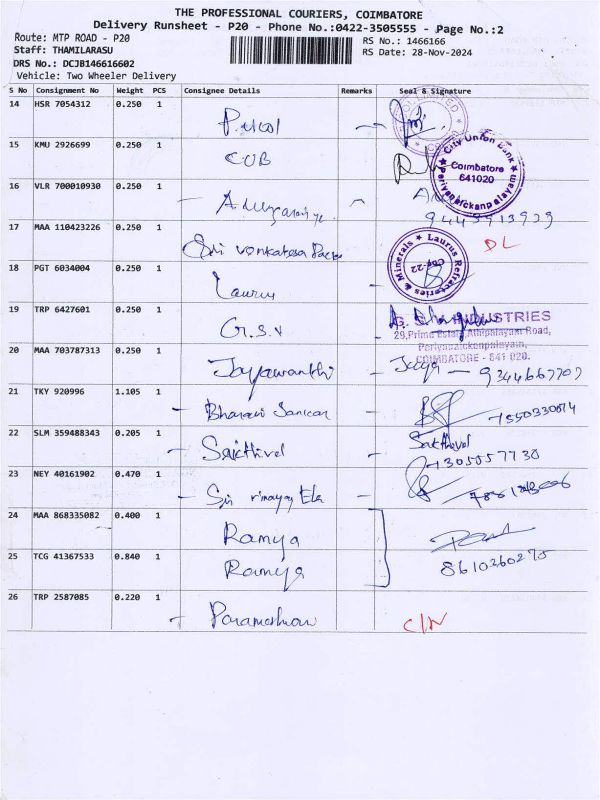 THE PROFESSIONAL COURIERS, COIMBATORE
Delivery Runsheet - P20 - Phone No.:0422-3505555 - Page No.:2
Route: MTP ROAD - P20
RS No.: 1466166
Staff: THAMILARASU
RS Date: 28-Nov-2024
DRS No.: DCJB146616602
Vehicle: Two Wheeler Delivery
S No Consignment No Weight PCS Consignee Details Remarks Seal & Signature
14 HSR 7054312 0.250 1 Pricol
15 KMU 2926699 0.250 1 CUB
City Union Bank
Coimbatore
641020
Periyanaickenpalayam
16 VLR 700010930 0.250 1
17 MAA 110423226 0.250 1 Sri Venkatesa DL
18 PGT 6034004 0.250 1 Laurus
Laurus Refractories & Minerals
CBE-22
19 TRP 6427601 0.250 1 G.S.V
G.S.V INDUSTRIES
29,Prime Estate,Athipalayam Road,
Periyanaickenpalayam,
COIMBATORE - 641 020.
20 MAA 703787313 0.250 1 Jayavanthi Jaya - 9344667707
21 TKY 920996 1.105 1 Bharani Sankar 7550330074
22 SLM 359488343 0.205 1 Sakthivel Sakthivel
7305557730
23 NEY 40161902 0.470 1 Sri
24 MAA 868335082 0.400 1 Ramya
25 TCG 41367533 0.840 1 Ramya 8610260275
26 TRP 2587085 0.220 1 Parameshwari C/N